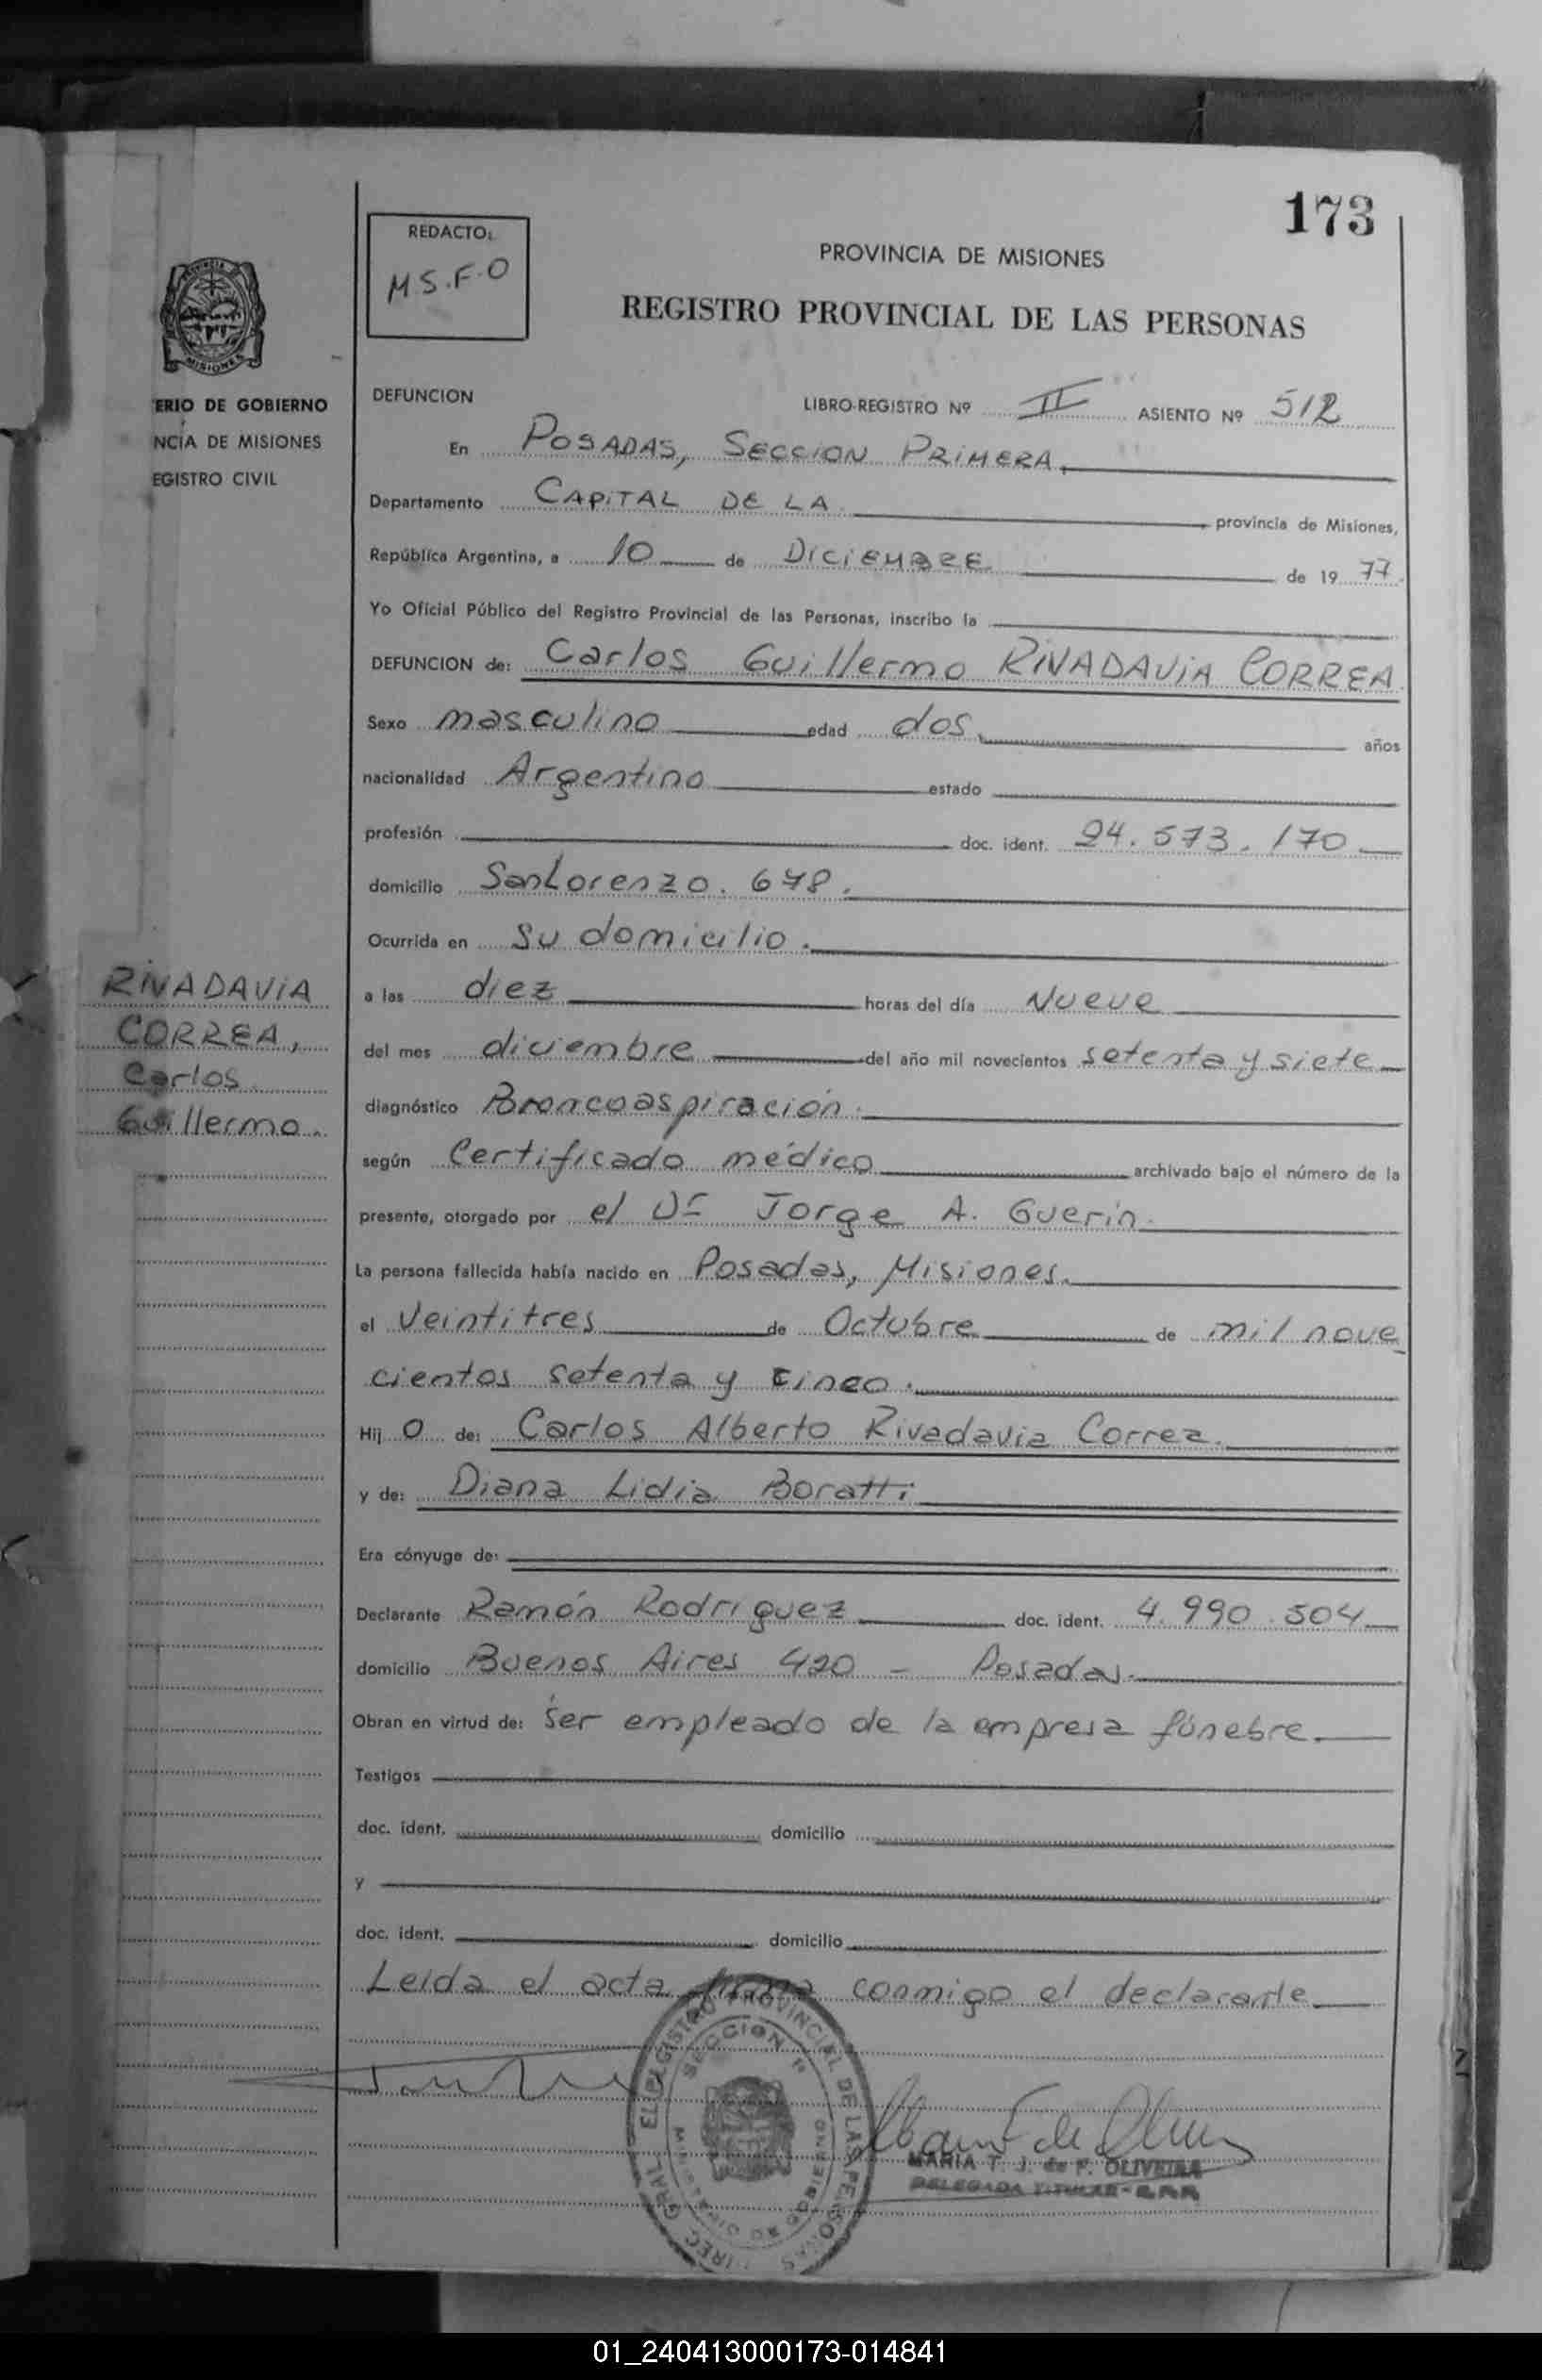 173
REDACTO:
M.S.F.O
PROVINCIA DE MISIONES
REGISTRO PROVINCIAL DE LAS PERSONAS
MISIONES
ERIO DE GOBIERNO
NCIA DE MISIONES
EGISTRO CIVIL
DEFUNCION LIBRO-REGISTRO Nº II ASIENTO Nº 512
En POSADAS, SECCION PRIMERA,
Departamento CAPITAL DE LA provincia de Misiones,
República Argentina, a 10 de DICIEMBRE de 19 77.
Yo Oficial Público del Registro Provincial de las Personas, inscribo la
DEFUNCION de: Carlos Guillermo RIVADAVIA CORREA
Sexo masculino edad dos, años
nacionalidad Argentino estado
profesión doc. ident. 24.573.170
domicilio San Lorenzo. 678.
Ocurrida en su domicilio.
a las diez horas del día Nueve
del mes diciembre del año mil novecientos setenta y siete
diagnóstico Broncoaspiración.
según Certificado médico archivado bajo el número de la
presente, otorgado por el Dr Jorge A. Guerin.
La persona fallecida había nacido en Posadas, Misiones.
el Veintitres de Octubre de mil nove
cientos setenta y cinco.
Hij o de: Carlos Alberto Rivadavia Correa.
y de: Diana Lidia Boratti
Era cónyuge de:
Declarante Ramón Rodriguez doc. ident. 4.990.504
domicilio Buenos Aires 420 - Posadas.
Obran en virtud de: ser empleado de la empresa fúnebre.
Testigos
doc. ident. domicilio
y
doc. ident. domicilio
Leida el acta firma conmigo el declarante
RIVADAVIA
CORREA,
Carlos
Guillermo.
REGISTRO PROVINCIAL DE LAS PERSONAS
SECCION 1ª
MARIA T. J. de F. OLIVEIRA
DELEGADA TITULAR
01_240413000173-014841